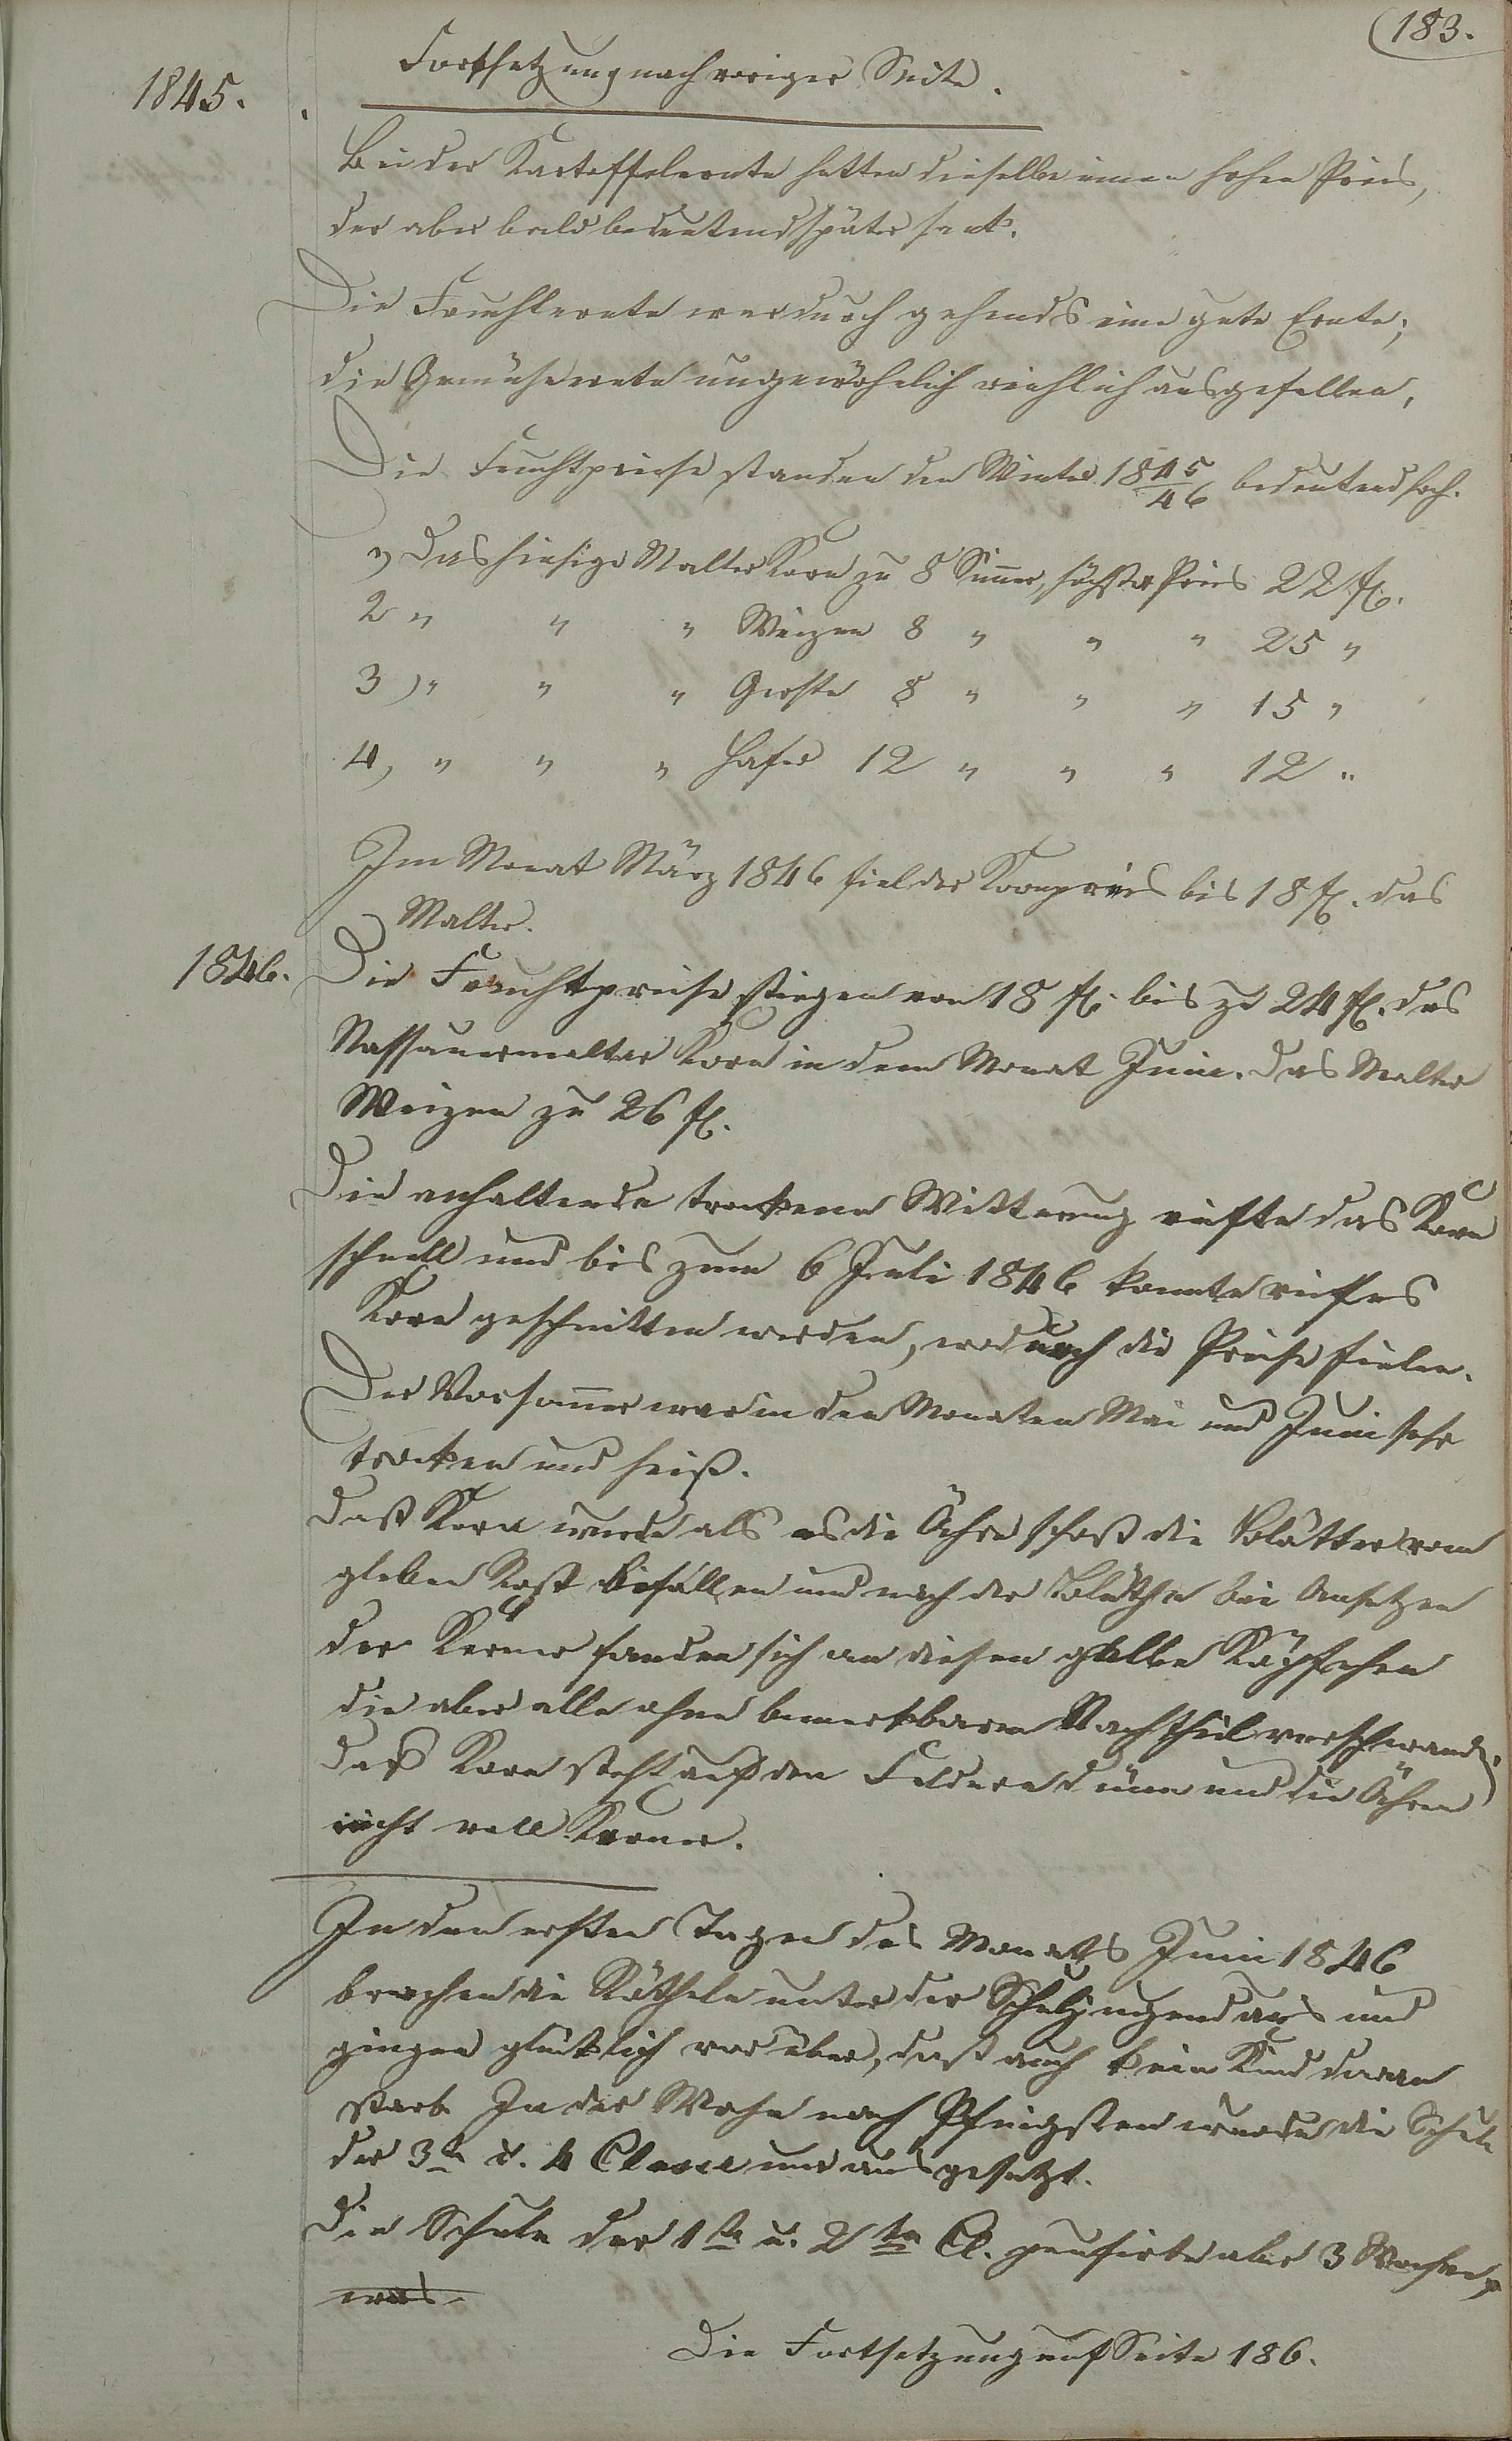 183.
Fortsetzung nach voriger Seite.
1845.
Bei der Kartoffelernte hatten dieselbe einen hohen Preis,
der aber bald bedeutend später sank.
Die Fruchternte war durchgehends eine gute Ernte;
die Gemüseernte ungewöhnlich reichlich ausgefallen,
Die Fruchtpreise standen den Winter 1845/46 bedeutend hoch.
1) Das hiesige Malter Korn zu 8 Simmer, höchster Preis 22 fl.
2 " " " Weizen 8 " " " 25 "
3) " " " Gerste 8 " " " 15 "
4, " " " Hafer 12 " " " 12 "
Im Monat März 1846 fiel der Kornpreis bis 18 fl. das
Malter.
1846.
Die Fruchtpreise stiegen von 18 fl. bis zu 24 fl. das
Nassauermalter Korn in dem Monat Junie. Das Malter
Weizen zu 26 fl.
Die anhaltende trockene Witterung reifte das Korn
schnell und bis zum 6 Juli 1846 konnte reifes
Korn geschnitten werden, wodurch die Preise fielen.
Der Vorsommer war in den Monaten Mai und Juni sehr
trocken und heiß.
Daß Korn wurde als es die Ähre schoß die Blätter vom
gelben Rost befallen und nach der Blüthe bei Ansetzen
der Kerner fanden sich an diesen gelbe Köpfchen
die aber alle ohne bemerkbaren Nachtheil verschwanden.
Daß Korn steht auf den Feldern dünn und die Ähren
nicht voll Kerner.
In den ersten Tagen des Monats Juni 1846
brachen die Rötheln unter der Schuljugend aus und
gingen glücklich vorüber, daß auch kein Kind daran
starb In der Woche nach Pfingsten wurde die Schule
der 3te u. 4 Classe nur ausgesetzt.
Die Schule der 1te u. 2ten Cl. pausirte aber 3 Wochen
was
Die Fortsetzung auf Seite 186.